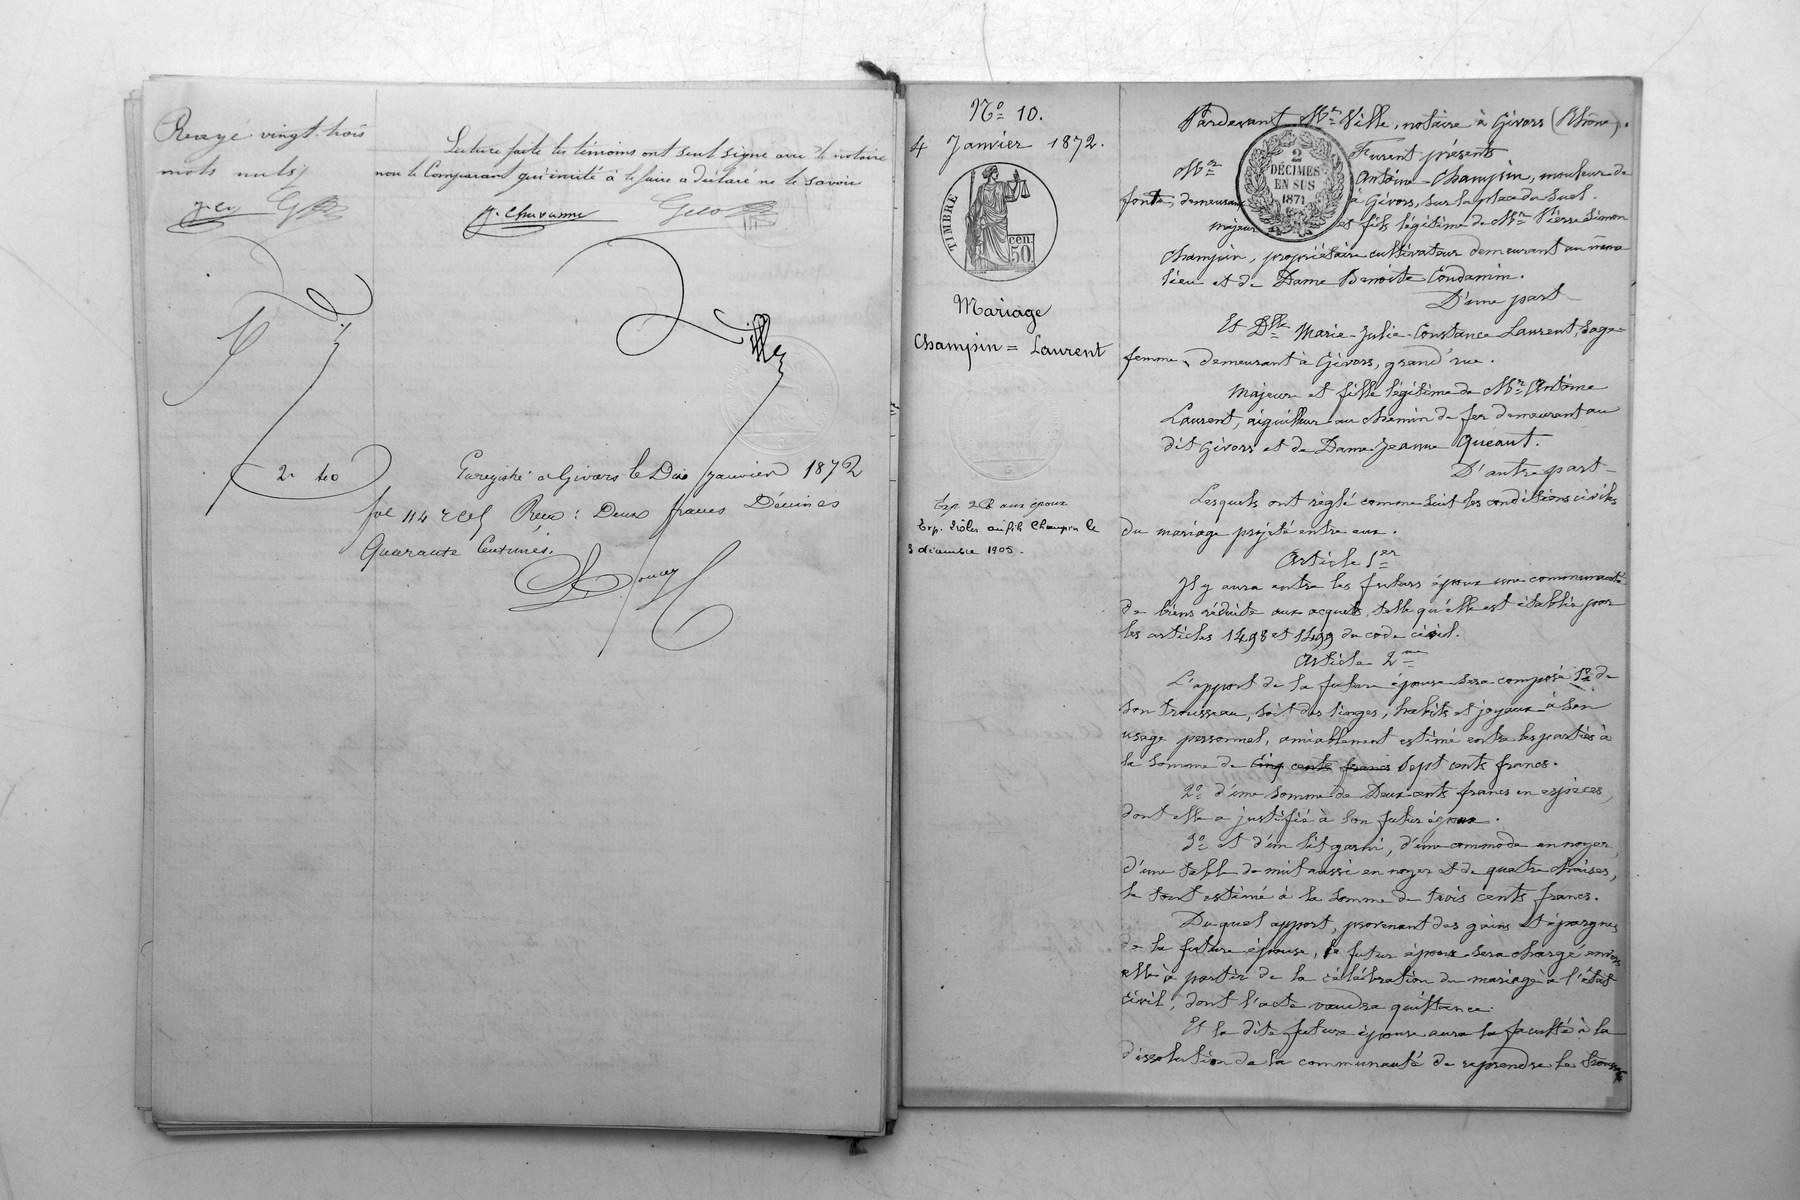 Rayé vingt trois
mots nuls
Lecture faite les témoins ont seul signé avec le notaire
non le Comparant qui invité à le faire a déclaré ne le savoir
J. Chavanne
Ville
2. 40
Enregistré a Givors le Dix janvier 1872
fol 114 Reçu : Deux francs Décimes
Quarante Centimes.
Nº 10.
4 Janvier 1872.
TIMBRE
50 cen.
Mariage
Champin = Laurent
Exp. aux époux
Exp. rôles au fils Champin le
3 décembre 1905.
Pardevant Mre Ville, notaire à Givors (Rhône).
2
DÉCIMES
EN SUS
1871
Furent présents
Mr Antoine Champin, mouleur de
fonte, demeurant à Givors, sur la place du Suel.
majeur et fils légitime de Mr Pierre Simon
Champin, propriétaire cultivateur demeurant au même
lieu et de Dame Benoite Condamin.
D'une part
Et Dlle Marie-Julie-Constance Laurent, sage-
femme, demeurant à Givors, grand'rue.
Majeure et fille légitime de Mr Antoine
Laurent, aiguilleur au chemin de fer demeurant au
dit Givors et de Dame Jeanne Queaut.
D'autre part
Lesquels ont réglé comme suit les conditions civiles
du mariage projeté entre eux.
Article 1er
Il y aura entre les futurs époux une communauté
de biens réduite aux acquets, telle qu'elle est établie par
les articles 1498 et 1499 du code civil.
Article 2me
L'apport de la future épouse sera composé 1º de
son trousseau, soit des linges, habits et joyaux à son
usage personnel, amiablement estimé entre les parties à
la somme de cinq cents francs sept cents francs.
2º d'une somme de Deux cents francs en espèces,
dont elle a justifié à son futur époux.
3º et d'un lit garni, d'une commode en noyer,
d'une table de nuit aussi en noyer et de quatre chaises,
le tout estimé à la somme de trois cents francs.
Du quel apport, provenant des gains et épargnes
de la future épouse, le futur époux sera chargé envers
elle à partir de la célébration du mariage à l'état
civil, dont l'acte vaudra quittance.
Et la dite future épouse aura la faculté à la
dissolution de la communauté de reprendre le trousseau